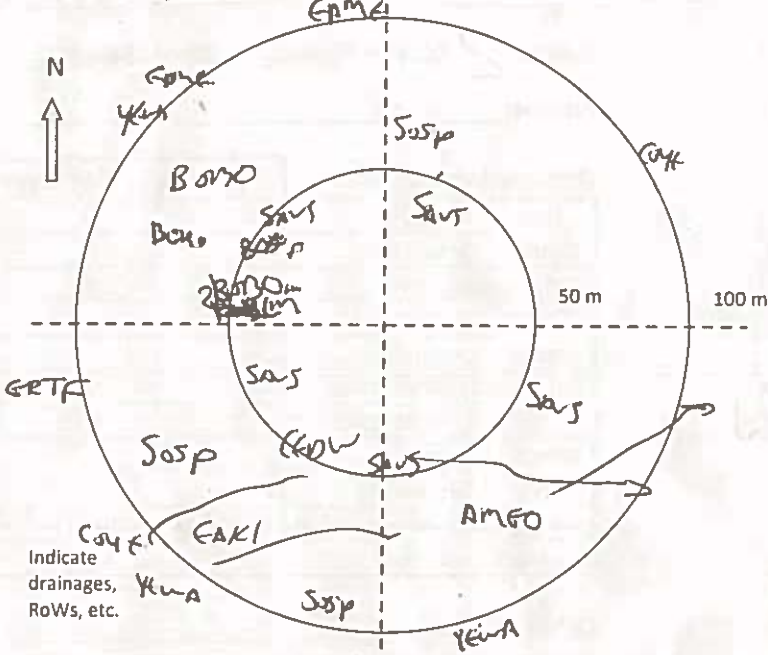 EAME
N
YEWA
SOSP
COYE
BOBO
SAVS
SAVS
BOBO
50 m
100 m
SAVS
GRTE
SAVS
SOSP
SAVS
AMGO
COYE
EAKI
Indicate
drainages,
RoWs, etc.
YEWA
SOSP
YEWA